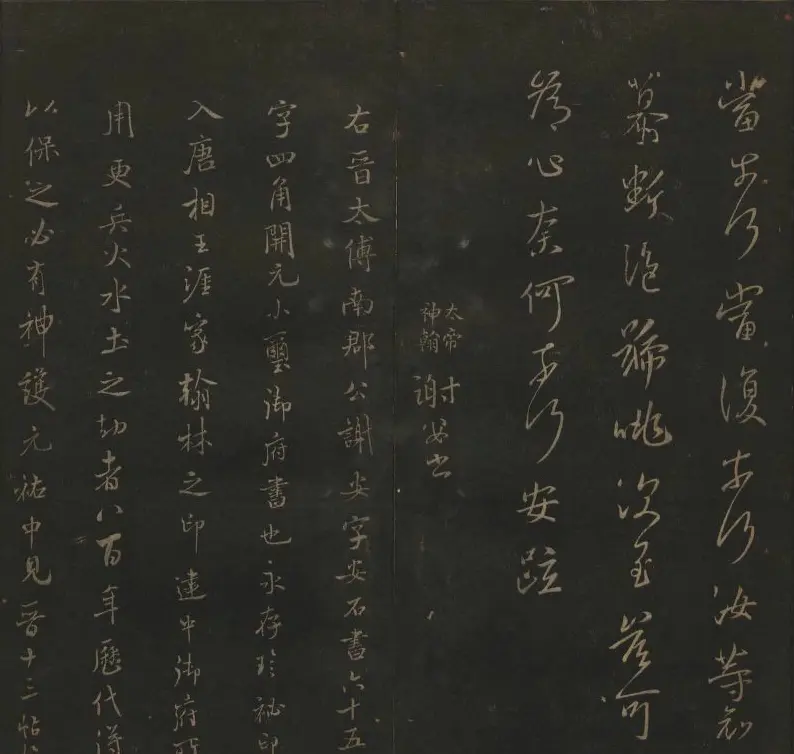 當奈何當復奈何汝等哀
慕斷絕號咷深至豈可
為心奈何奈何安疏
太帝
神翰
謝安書
右晉太傅南郡公謝安字安石書六十五
字四角開元小璽御府書也永存珍秘印
入唐相王涯家翰林之印建中御府所
用更兵火水土之劫者八百年歷代得
以保之必有神護元祐中見晉十三帖於